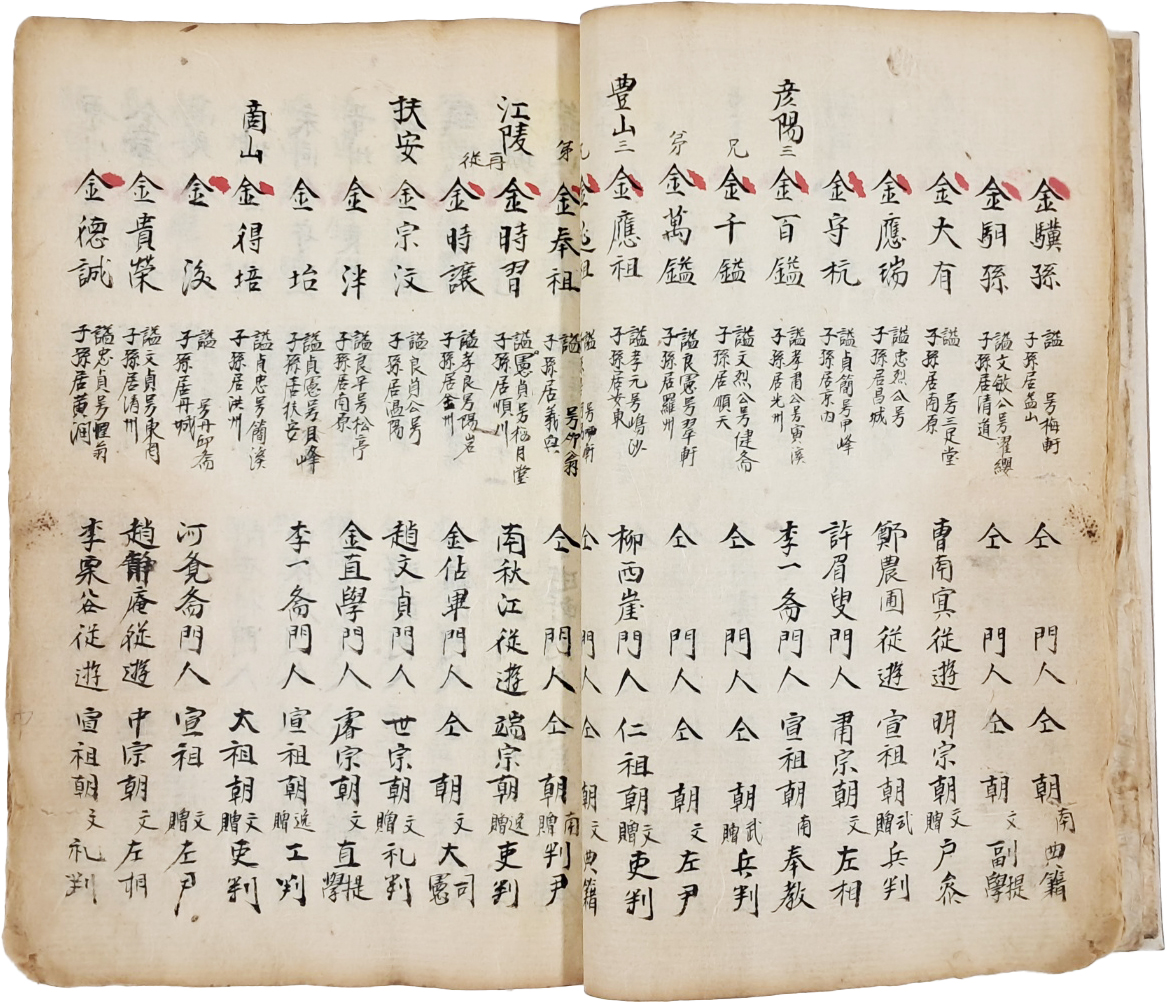 金驥孫 号梅軒 子孫居益山 仝門人 仝朝 南 典籍
金馹孫 謚文敏公号濯纓 子孫居清道 仝門人 仝朝 文 副提學
金大有 謚 号三足堂 子孫居南原 曺南冥從遊 明宗朝 文 贈戶叅
金應瑞 謚忠烈公号 子孫居昌城 鄭農圃從遊 宣祖朝 武 贈兵判
金守杭 謚貞簡号甲峰 子孫居京內 許眉叟門人 肅宗朝 文 左相
彦陽三 金百鎰 謚孝肅公号寅溪 子孫居光州 李一齋門人 宣祖朝 南 奉教
兄 金千鎰 謚文烈公号健齋 子孫居順天 仝門人 仝朝 武 贈兵判
弟 金萬鎰 謚良憲号翠軒 子孫居羅州 仝門人 仝朝 文 左尹
豊山三 金應祖 謚孝元号鳴沙 子孫居安東 柳西崖門人 仁祖朝 文 贈吏判
祖 謚 仝門人 仝朝 文 典籍
弟 金奉祖 謚 翁 子孫居義興 仝門人 仝朝 南 贈判尹
江陵 金時習 謚憲貞号梅月堂 子孫居順川 南秋江從遊 端宗朝 逸 贈吏判
再從 金時讓 謚孝良号陽岩 子孫居金州 金佔畢門人 仝朝 文 大司憲
扶安 金宗汶 謚良貞公号 子孫居温陽 趙文貞門人 世宗朝 文 贈礼判
金泮 謚良平号松亭 子孫居南原 金直學門人 睿宗朝 文 直提學
金坮 謚貞憲号月峰 子孫居扶安 李一齋門人 宣祖朝 逸 贈工判
商山 金得培 謚貞忠号簡溪 子孫居洪州 太祖朝 文 贈吏判
金浚 謚 号丹邱齋 子孫居丹城 河覺齋門人 宣祖 文 贈左尹
金貴榮 謚文貞号東岡 子孫居清州 趙靜庵從遊 中宗朝 文 左相
金德誠 謚忠貞号惺翁 子孫居黃澗 李栗谷從遊 宣祖朝 文 礼判